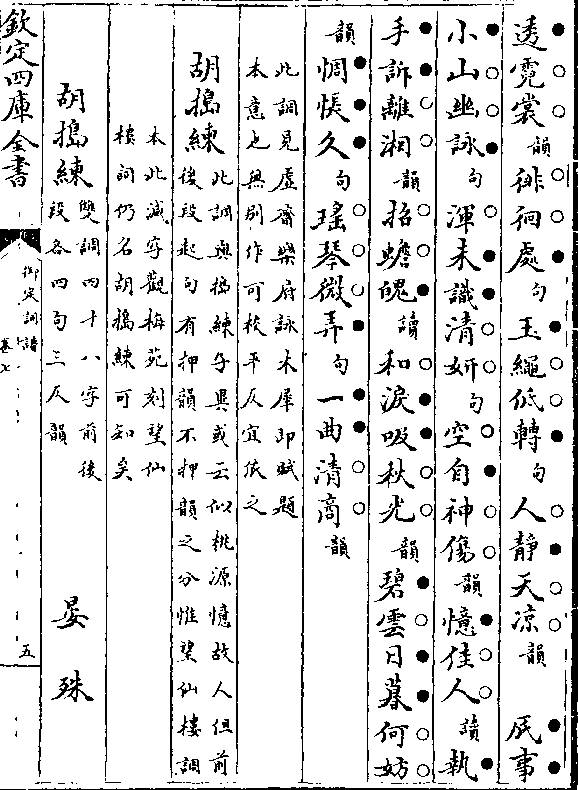 透霓裳韻徘徊處句玉繩低轉句人靜天凉韻 民事
小山幽詠句渾未識清妍句空自神傷韻憶佳人讀執
手訴離湘韻招蟾魄讀和淚吸秋光韻碧雲日暮何妨
韻惆悵久句瑤琴微弄句一曲清商韻
此調見虛齋樂府詠木犀即賦題
本意也無别作可校平仄宜依之
胡搗練
此調與搗練子異或云似桃源憶故人但前
後段起句有押韻不押韻之分惟望仙樓調
本此減字觀梅苑刻望仙
樓詞仍名胡搗練可知矣
胡搗練
雙調四十八字前後
段各四句三仄韻
晏殊
欽定四庫全書
御定詞譜
卷七
五